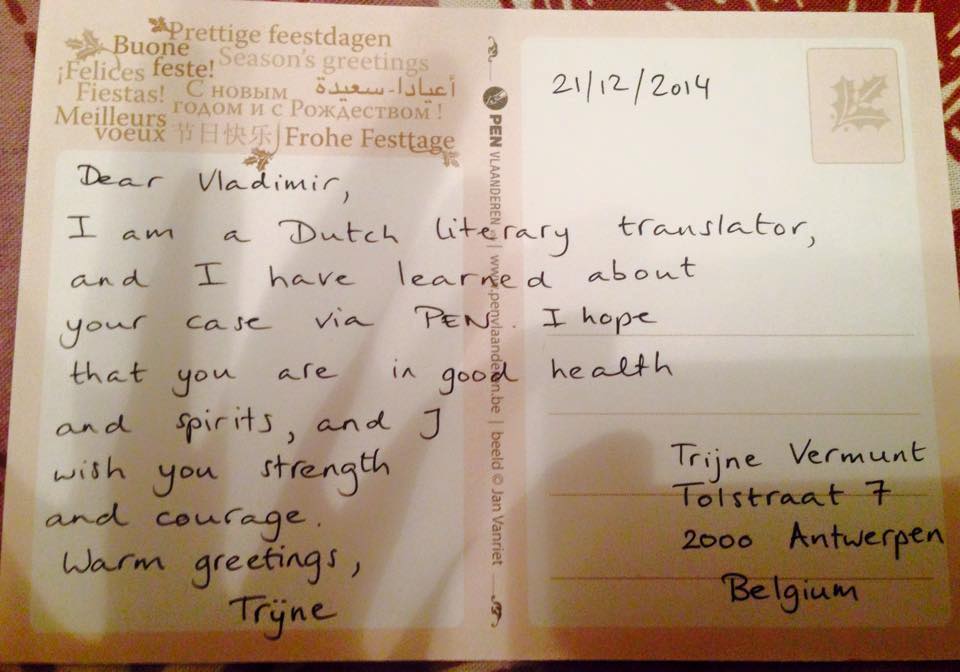 Prettige feestdagen
Buone feste!
Season's greetings
¡Felices Fiestas!
С новым годом и с Рождеством !
أعيادا-سعيدة
Meilleurs voeux
节日快乐
Frohe Festtage
Dear Vladimir,
I am a Dutch literary translator,
and I have learned about
your case via PEN. I hope
that you are in good health
and spirits, and I
wish you strength
and courage.
Warm greetings,
Trijne
PEN VLAANDEREN | www.penvlaanderen.be | beeld © Jan Vanriet
21/12/2014
Trijne Vermunt
Tolstraat 7
2000 Antwerpen
Belgium